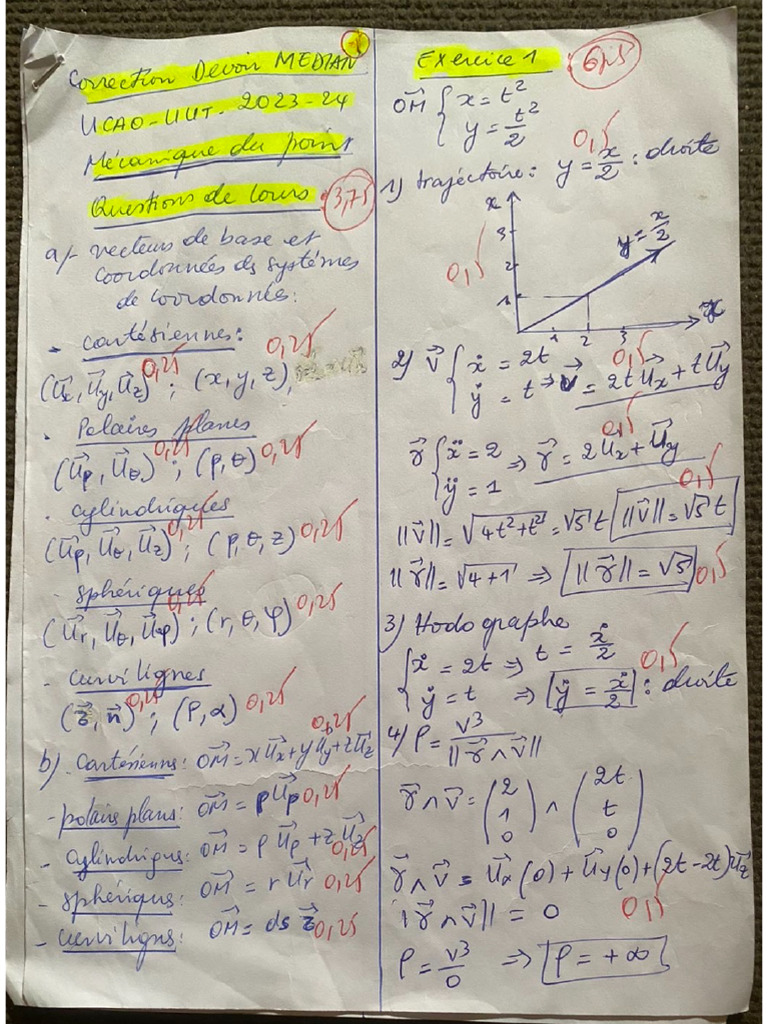 Correction Devoir MEDIAN
UCAO-UUT. 2023-24
Mécanique du point
Questions de cours : 3,75
a)- vecteurs de base et
coordonnées ds systèmes
de coordonnées:
- cartésiennes:
(u⃗x, u⃗y, u⃗z) 0,25 ; (x, y, z), 0,25
. Polaires planes
(u⃗ρ, u⃗θ) 0,25 ; (ρ, θ) 0,25
. cylindriques
(u⃗ρ, u⃗θ, u⃗z) 0,25 ; (ρ, θ, z) 0,25
- sphériques
(u⃗r, u⃗θ, u⃗φ) 0,25 ; (r, θ, φ) 0,25
- curvilignes
(τ⃗, n⃗) 0,25 ; (ρ, α) 0,25
b) . Cartésienns: OM⃗ = x u⃗x + y u⃗y + z u⃗z 0,25
- polairs plans: OM⃗ = ρ u⃗ρ 0,25
- cylindriqus: OM⃗ = ρ u⃗ρ + z u⃗z 0,25
- sphériqus: OM⃗ = r u⃗r 0,25
- curviligns: OM⃗ = ds τ⃗ 0,25
Exercice 1 : 6,5
OM⃗ { x = t²
y = t²/2
1) trajectoire: y = x/2 : droite 0,5
x
3
2
1
1 2 3
y = x/2
0,5
x
2) v⃗ { ẋ = 2t
ẏ = t ⇒ v⃗ = 2t u⃗x + t u⃗y 0,5
γ⃗ { ẍ = 2
ÿ = 1 ⇒ γ⃗ = 2u⃗x + u⃗y 0,5
||v⃗|| = √4t²+t² = √5 t ||v⃗|| = √5 t 0,5
||γ⃗|| = √4+1 ⇒ ||γ⃗|| = √5 0,5
3) Hodographe
{ ẋ = 2t ⇒ t = ẋ/2
ẏ = t ⇒ ẏ = ẋ/2 : droite 0,5
4) ρ = v³/||γ⃗ ∧ v⃗||
γ⃗ ∧ v⃗ = (2 1 0) ∧ (2t t 0)
γ⃗ ∧ v⃗ = u⃗x(0) + u⃗y(0) + (2t-2t)u⃗z
||γ⃗ ∧ v⃗|| = 0 0,5
ρ = v³/0 ⇒ ρ = +∞